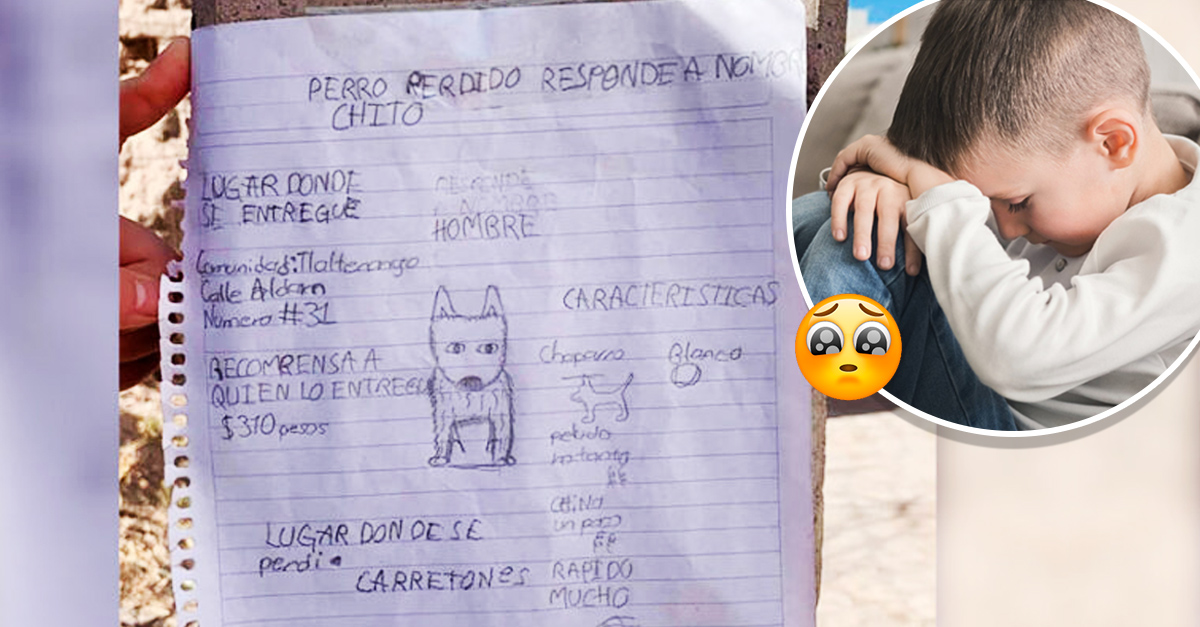 PERRO PERDIDO RESPONDE A NOMBRE
CHITO
LUGAR DONDE
SE ENTREGUE
RESPONDE
NOMBRE
HOMBRE
Comunidad: Tlaltenango
Calle
Numero #31
RECOMPRENSA A
QUIEN LO ENTREGUE
$310 pesos
CARACTERISTICAS
Chaparro
Blanco
peludo
CHiNo
un poco
RAPIDO
MUCHO
LUGAR DONDE SE
perdio
CARRETONeS